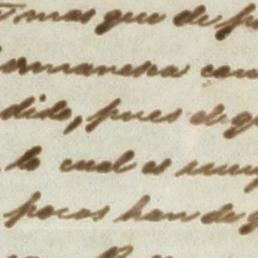 mas que de
permanesca con
dido, pues el q
lo cual es muy
pocos han de q